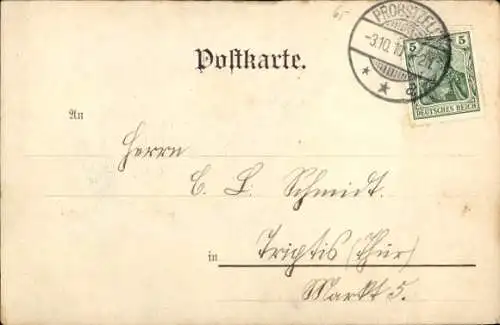 PROBSTZELLA
-3.10.10
a
5 5
DEUTSCHES REICH
Postkarte.
An
Herrn
C. L. Schmidt.
in Triptis (Thür)
Markt 5.